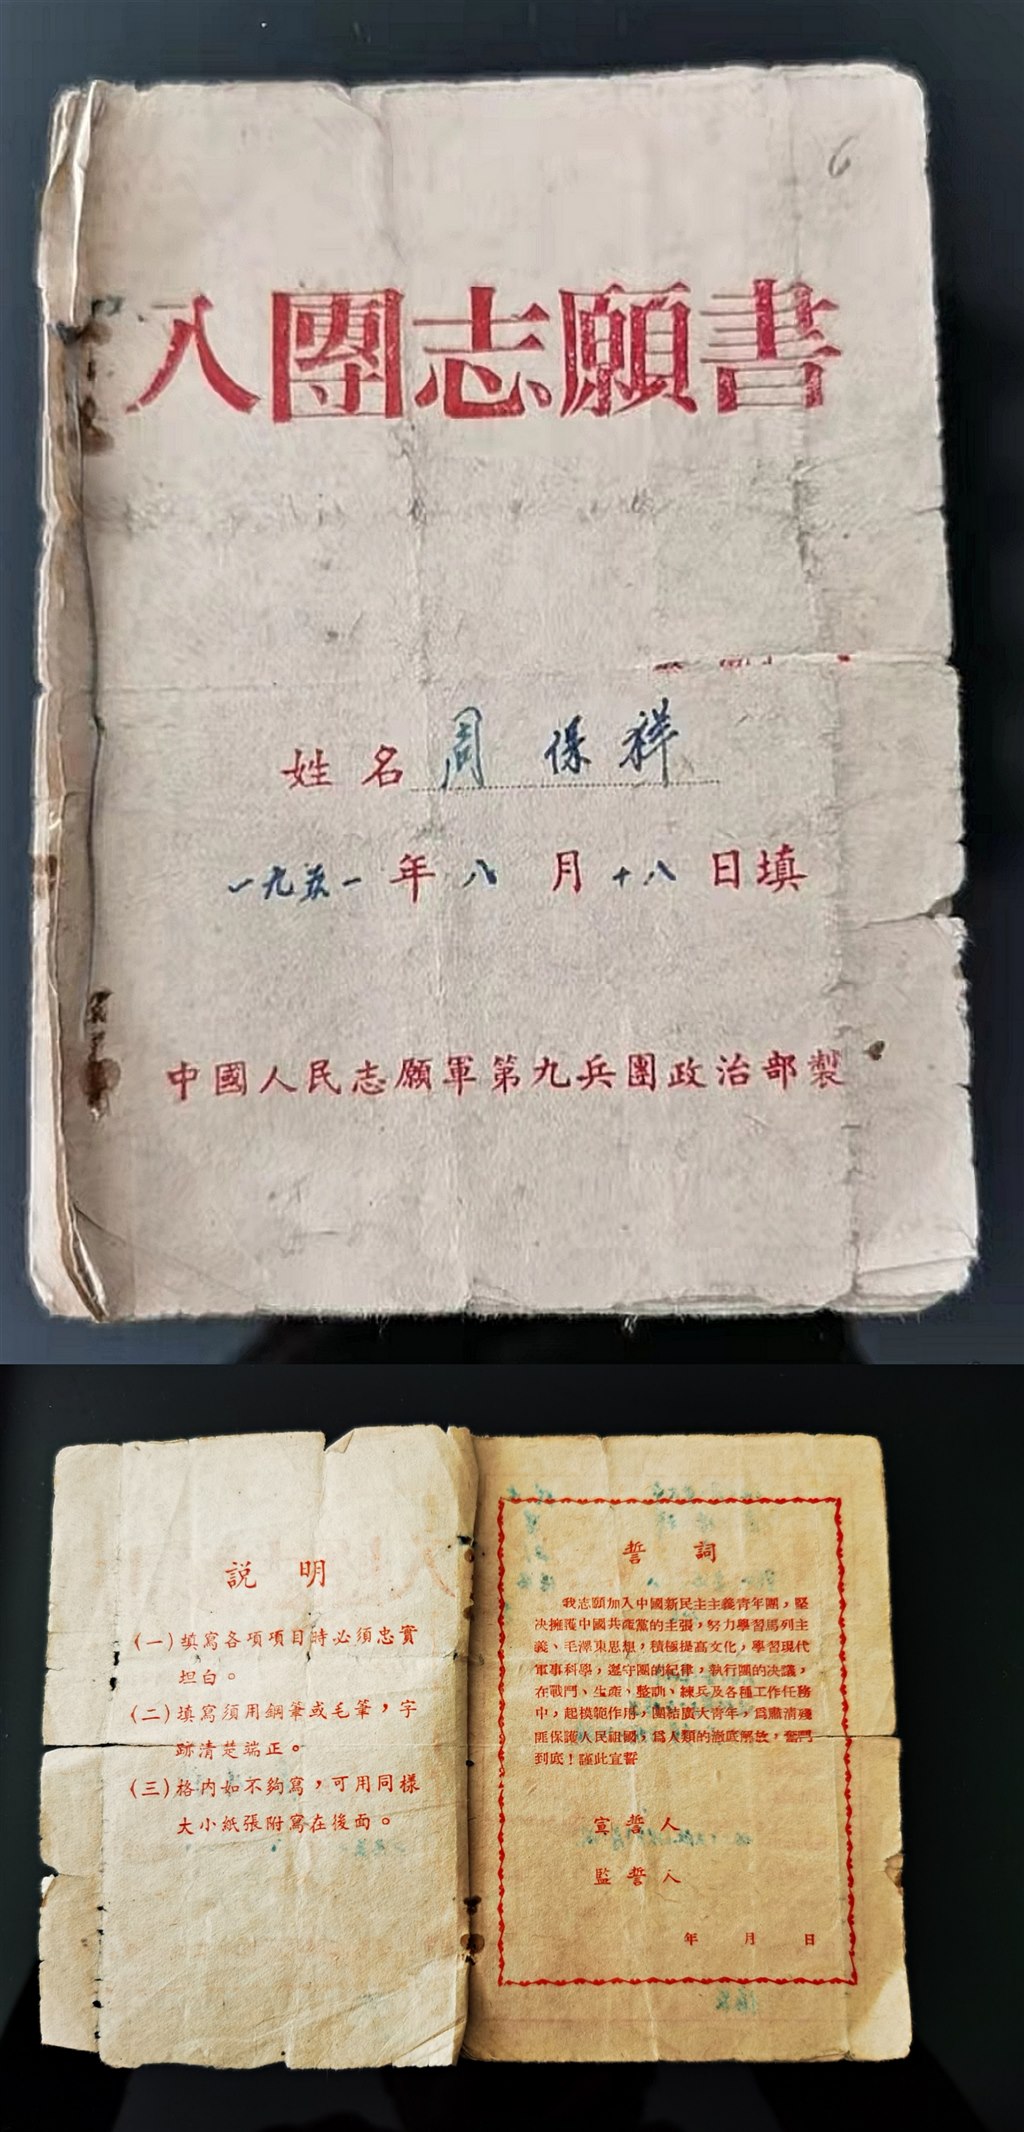 6
入團志願書
姓名 周保祥
一九五一年八月十八日填
中國人民志願軍第九兵團政治部製
説明
(一)填寫各項項目時必須忠實
坦白。
(二)填寫須用鋼筆或毛筆，字
跡清楚端正。
(三)格内如不夠寫，可用同樣
大小紙張附寫在後面。
誓詞
我志願加入中國新民主主義青年團，堅
决擁護中國共產黨的主張，努力學習馬列主
義、毛澤東思想，積極提高文化，學習現代
軍事科學，遵守團的紀律，執行團的决議，
在戰鬥、生產、整訓、練兵及各種工作任務
中，起模範作用，團結廣大青年，爲肅清殘
匪保護人民祖國，爲人類的澈底解放，奮鬥
到底！謹此宣誓
宣誓人
監誓人
年 月 日